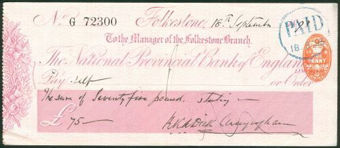 No G 72300 Folkestone, 18th September
PAID
18
To the Manager of the Folkestone Branch.
The National Provincial Bank of England
Pay self or Order
PENNY
The sum of Seventy five pounds sterling
£75 —
Dick Cunyngham